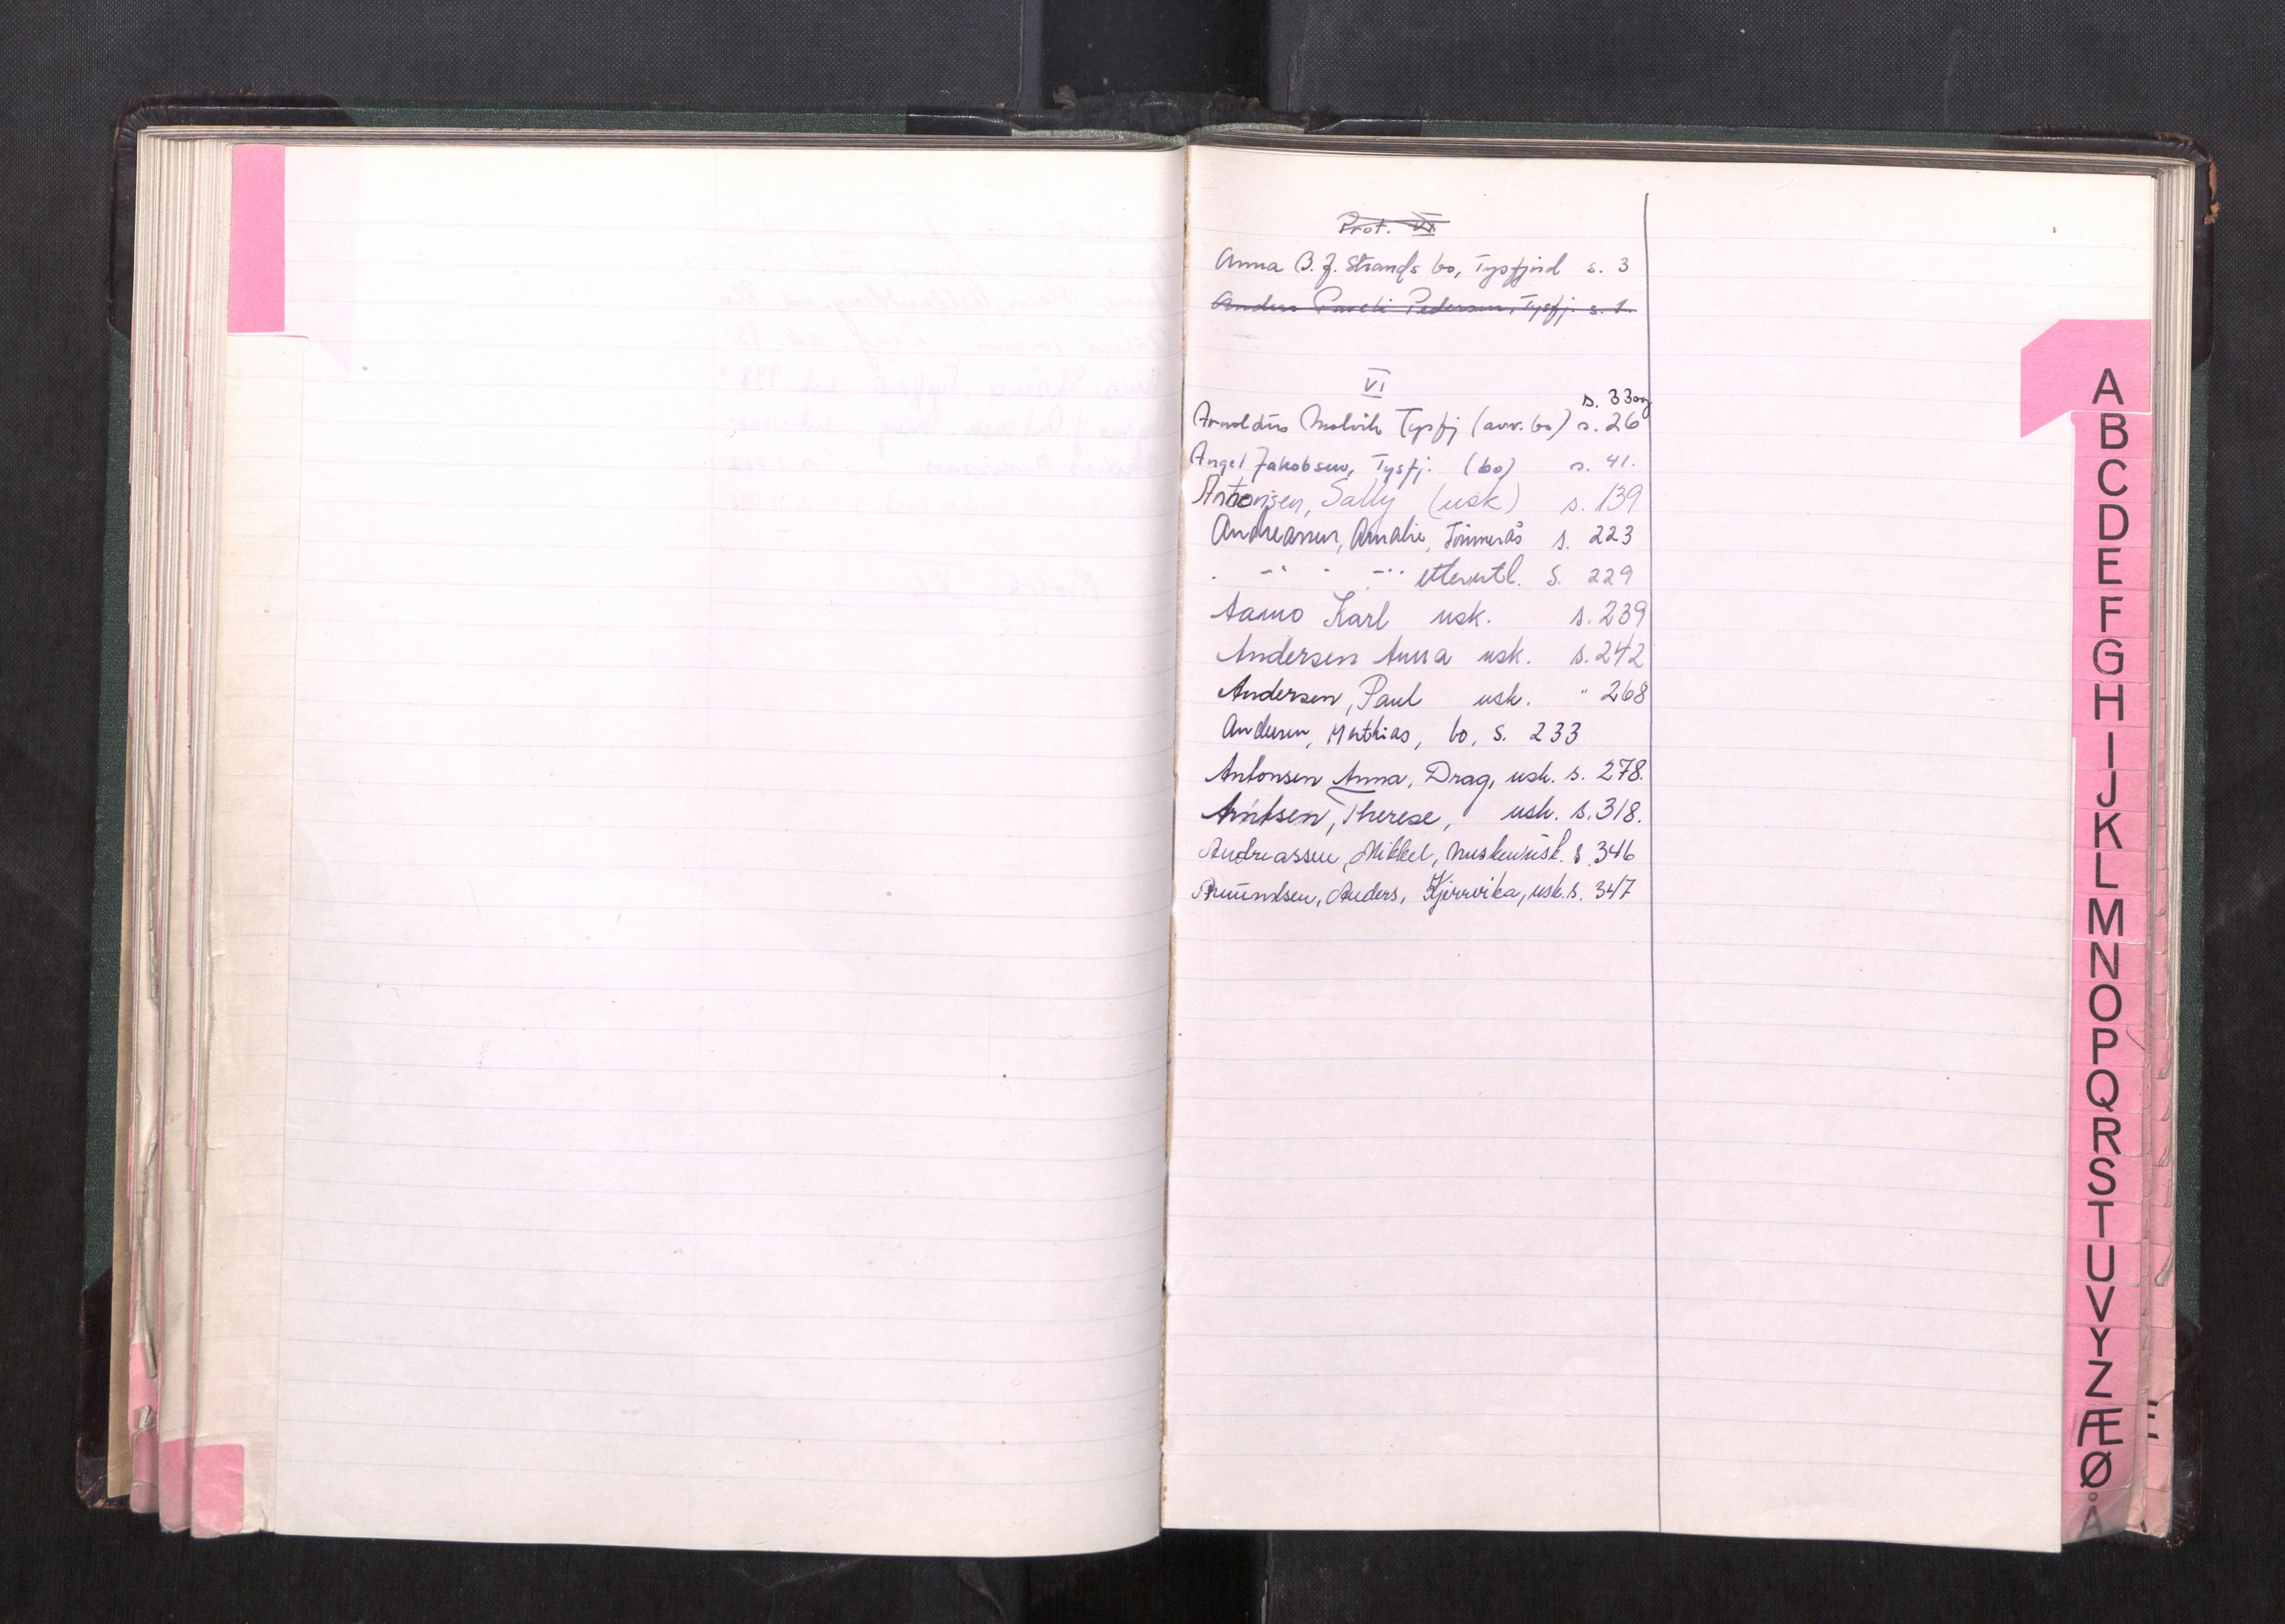 Prot. VI
Anna B. J. Strands bo, Tysfjord s. 3
Anders Paveli Pedersen, Tysfj. s. 1.
VI
s. 33 og
Arnoldus Molvik Tysfj (avv. bo) s. 26
Angel Jakobsen, Tysfj. (bo) s. 41.
Antonsen, Sally (usk) s. 139
Andreassen, Amalie, Tømmerås s. 223
- " - " - " etterutl. S. 229
Aamo Karl usk. s. 239
Andersen Anna usk. s. 242
Andersen, Paul usk. " 268
Andersen, Mathias, bo, s. 233
Antonsen Anna, Drag, usk. s. 278.
Arntsen, Therese, usk. s. 318.
Andreassen, Mikkel, Musken usk. s. 346
Amundsen, Anders, Kjerrvika, usk. s. 347
A
B
C
D
E
F
G
H
I
J
K
L
M
N
O
P
Q
R
S
T
U
V
Y
Z
Æ
Ø
Å